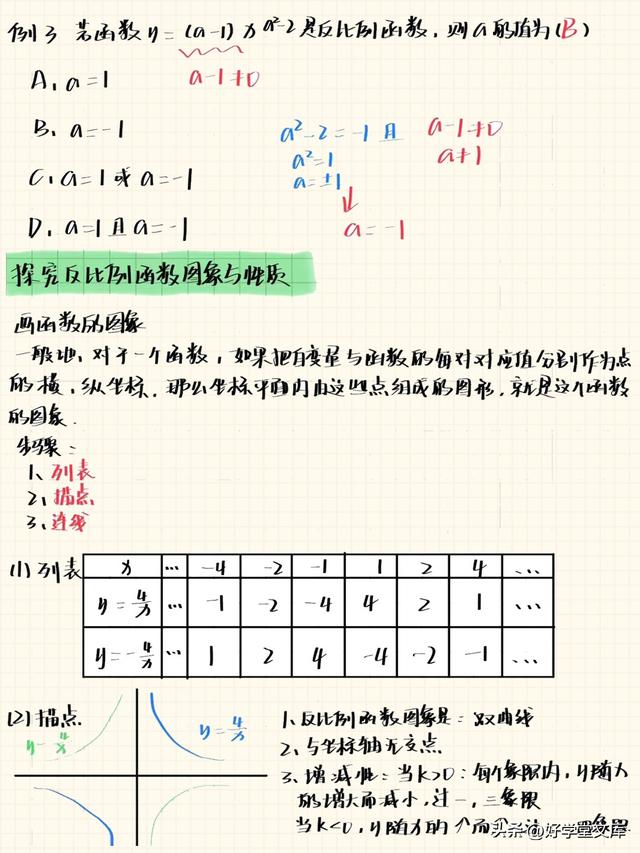 例3 若函数y=(a-1)x^{a²-2}是反比例函数,则a的值为(B)
A、a=1
a-1≠0
B、a=-1
a²-2=-1且
a-1≠0
a²=1
a≠1
C、a=1或a=-1
a=±1
D、a=1且a=-1
a=-1
探究反比例函数图象与性质
画函数的图象
一般地,对于一个函数,如果把自变量与函数的每对对应值分别作为点
的横、纵坐标,那么坐标平面内由这些点组成的图形,就是这个函数
的图象.
步骤:
1、列表
2、描点
3、连线
(1)列表
x ... -4 -2 -1 1 2 4 ...
y=4/x ... -1 -2 -4 4 2 1 ...
y=-4/x ... 1 2 4 -4 -2 -1 ...
(2)描点.
y=4/x
1、反比例函数图象是:双曲线
2、与坐标轴无交点
3、增减性:当k>0:每个象限内,y随x
的增大而减小,过一,三象限
当k<0,y随x的个而
头条@好学堂文库